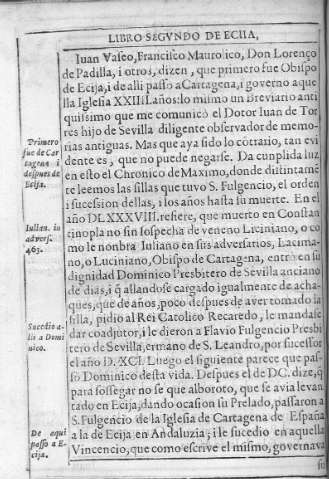 LIBRO SEGVNDO DE ECIIA,
Iuan Vaseo, Francisco Maurolico, Don Lorenço
de Padilla, i otros, dizen, que primero fue Obispo
de Ecija, i de alli passo a Cartagena, i governo aque
lla Iglesia XXIII. años: lo mismo un Breviario anti
quissimo que me comunicò el Dotor Iuan de Tor
res hijo de Sevilla diligente observador de memo-
rias antiguas. Mas que aya sido lo cõtrario, tan evi
dente es, que no puede negarse. Da cumplida luz
en esto el Chronico de Maximo, donde distintamẽ
te leemos las sillas que tuvo S. Fulgencio, el orden
i sucesion dellas, i los años hasta su muerte. En el
año DLXXXVIII. refiere, que muerto en Constan
cinopla no sin sospecha de veneno Liciniano, o co
mo le nonbra Iuliano en sus adversarios, Lacima-
no, o Luciniano, Obispo de Cartagena, entrò en su
dignidad Dominico Presbitero de Sevilla anciano
de dias, i q̃ allandose cargado igualmente de acha-
ques, que de años, poco despues de aver tomado la
silla, pidio al Rei Catolico Recaredo, le mandase
dar coadjutor, i le dieron a Flavio Fulgencio Presbi
tero de Sevilla, ermano de S. Leandro, por sucessor
el año D. XCI. Luego el siguiente parece que pas-
sò Dominico desta vida. Despues el de DC. dize, q̃
para sossegar no se que alboroto, que se avia levan
tado en Ecija, dando ocasion su Prelado, passaron a
S. Fulgencio de la Iglesia de Cartagena de España
a la de Ecija en Andaluzia; i le sucedio en aquella
Vincencio, que como escrive el mismo, governava
su
Primero
fue de Car
tagena i
despues de
Ecija.
Iulian. in
advers.
463.
Sucedio a-
li a Domi
nico.
De aqui
passo a E-
cija.